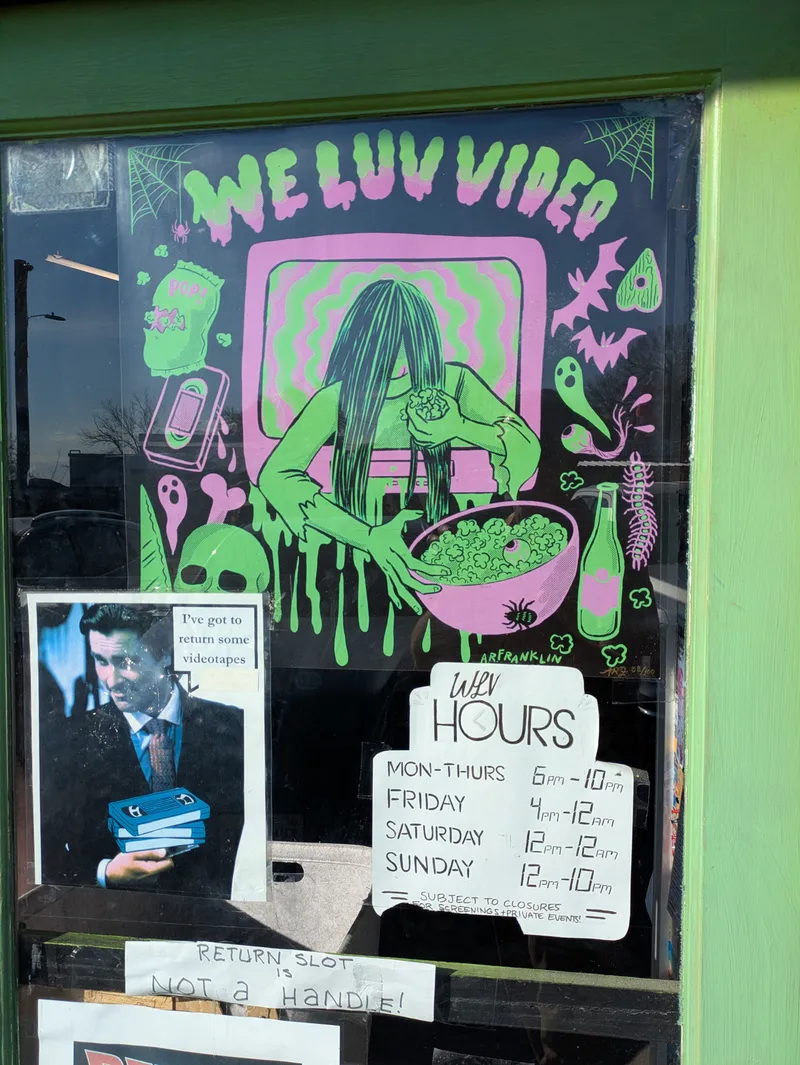 WE LUV VIDEO
POP!
I've got to
return some
videotapes
ARFRANKLIN
WLV
HOURS
MON-THURS 6PM-10PM
FRIDAY 4PM-12AM
SATURDAY 12PM-12AM
SUNDAY 12PM-10PM
SUBJECT TO CLOSURES
FOR SCREENINGS + PRIVATE EVENTS!
RETURN SLOT
IS
NOT a HANDLE!